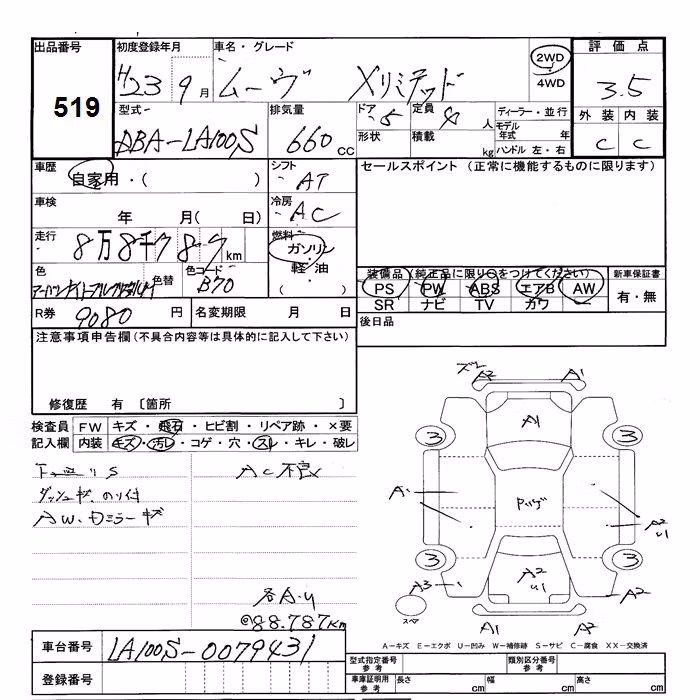 出品番号 519
初度登録年月 H23 9月
車名・グレード ムーヴ Xリミテッド
2WD
4WD
評価点 3.5
型式 DBA-LA100S
排気量 660cc
ドア 5
定員 4人
形状
積載 kg
ディーラー・並行
モデル年式 年
ハンドル 左・右
外装 C
内装 C
車歴 自家用・( )
シフト AT
セールスポイント (正常に機能するものに限ります)
車検 年 月( 日)
冷房 AC
走行 8万8千787km
燃料 ガソリン・軽油・( )
色
色替
色コード B70
装備品(純正品に限り○をつけてください)
PS PW ABS エアB AW
SR ナビ TV カワ
新車保証書 有・無
R券 9080円
名変期限 月 日
後日品
注意事項申告欄(不具合内容等は具体的に記入して下さい)
修復歴 有 〔箇所 〕
検査員記入欄
FW キズ・飛石・ヒビ割・リペア跡・×要
内装 キズ・汚レ・コゲ・穴・スレ・キレ・破レ
AC不良
ダッシュキズ、のり付
AW、ドミラーキズ
各A.U
@88.787km
A2 A1
A1
3 3
A1
A2
3 3
A2
A3
A2
スペア
A1 A2
A－キズ E－エクボ U－凹み W－補修跡 S－サビ C－腐食 XX－交換済
車台番号 LA100S-0079431
登録番号
型式指定番号 参考
類別区分番号 参考
車庫証明用 参考
長さ cm
幅 cm
高さ cm